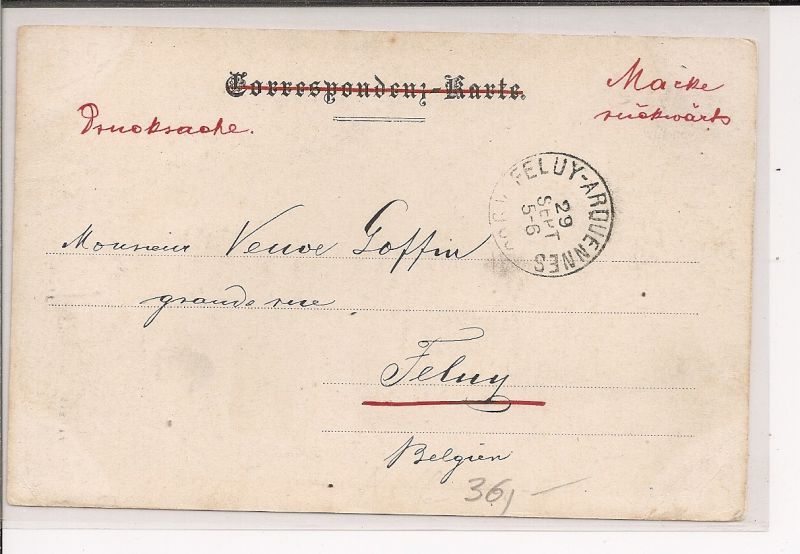 Correspondenz-Karte.
Marke
rückwärts
Drucksache.
FELUY-ARQUENNES
29
SEPT
5-6
Monsieur Veuve Goffin
grande rue
Feluy
Belgien
36,-